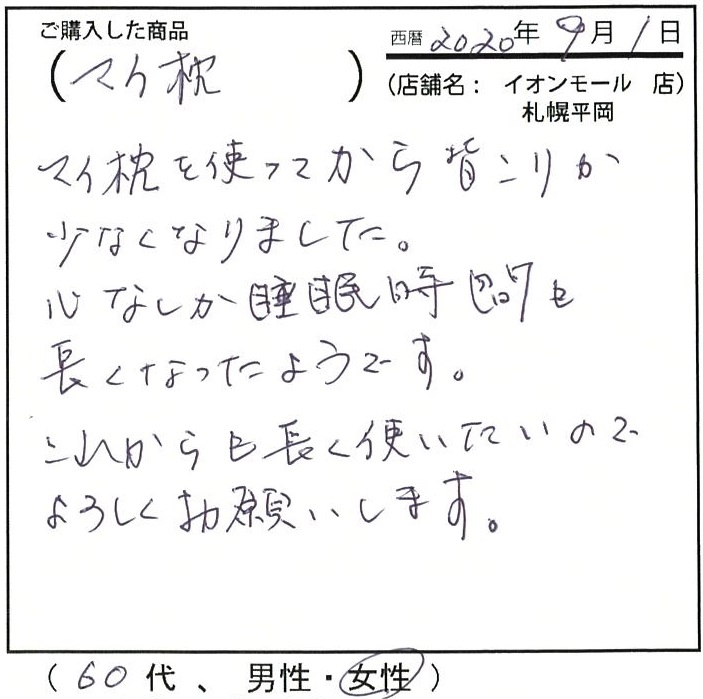 ご購入した商品
西暦 2020年 9月 1日
(マイ枕)
(店舗名： イオンモール 店)
札幌平岡
マイ枕を使ってから背こりが
少なくなりました。
心なしか睡眠時間も
長くなったようです。
これからも長く使いたいので
よろしくお願いします。
(60代、男性・女性)